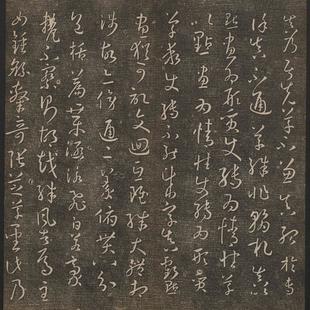 真乃居先草不兼真殆於專
謹真不通草殊非翰札真以
點畫為形質使轉為情性草
以點畫為情性使轉為形質
草乖使轉不能成字真虧點
畫猶可記文迴互雖殊大體相
涉故亦傍通二篆俯貫八分
包括篇章涵泳飛白若毫
釐不察則胡越殊風者焉至
如鍾繇隸奇張芝草聖此乃